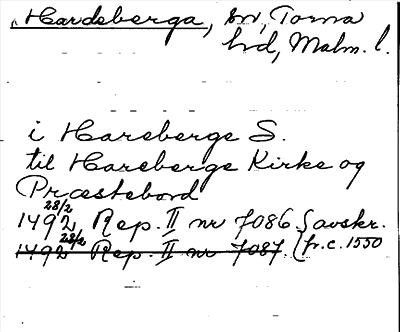 Hardeberga, sn, Torna
hd, Malm. l.
i Hareberge S.
til Hareberge Kirke og
Præstebord
1492 28/2, Rep. II nr 7086 { avskr.
1492 28/2 Rep. II nr 7087. { fr. c. 1550